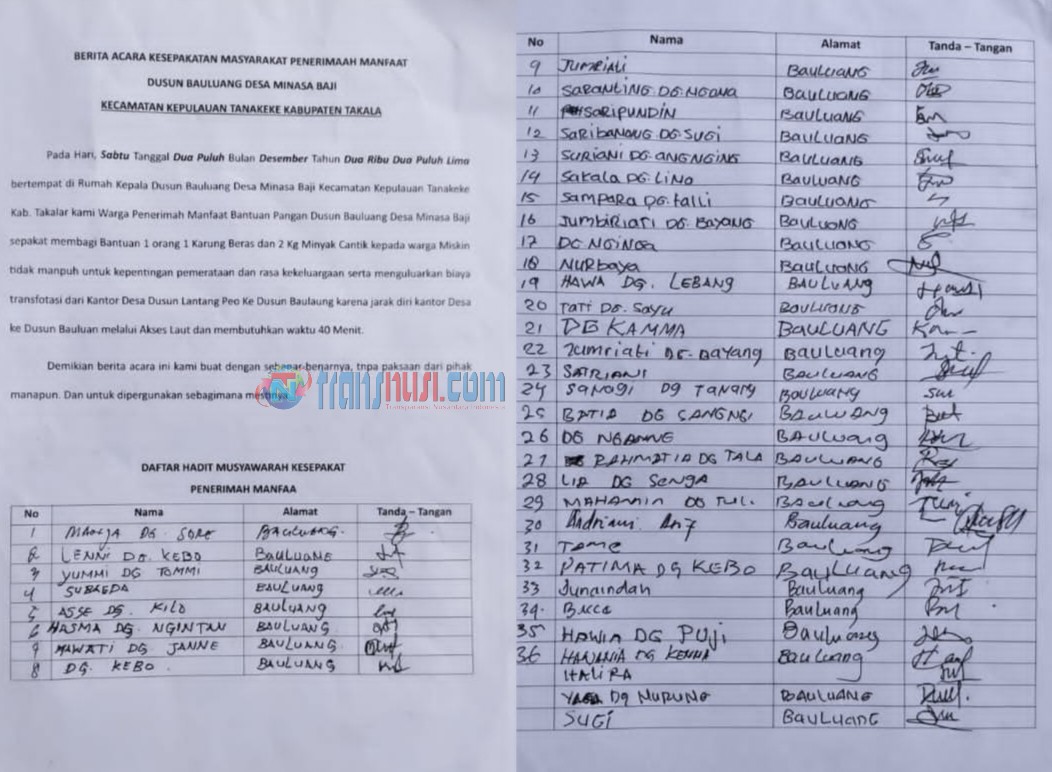 BERITA ACARA KESEPAKATAN MASYARAKAT PENERIMAAH MANFAAT
DUSUN BAULUANG DESA MINASA BAJI
KECAMATAN KEPULAUAN TANAKEKE KABUPATEN TAKALA
Pada Hari, Sabtu Tanggal Dua Puluh Bulan Desember Tahun Dua Ribu Dua Puluh Lima
bertempat di Rumah Kepala Dusun Bauluang Desa Minasa Baji Kecamatan Kepulauan Tanakeke
Kab. Takalar kami Warga Penerimah Manfaat Bantuan Pangan Dusun Bauluang Desa Minasa Baji
sepakat membagi Bantuan 1 orang 1 Karung Beras dan 2 Kg Minyak Cantik kepada warga Miskin
tidak manpuh untuk kepentingan pemerataan dan rasa kekeluargaan serta menguluarkan biaya
transfotasi dari Kantor Desa Dusun Lantang Peo Ke Dusun Baulaung karena jarak diri kantor Desa
ke Dusun Bauluan melalui Akses Laut dan membutuhkan waktu 40 Menit.
Demikian berita acara ini kami buat dengan sebenar-benarnya, tnpa paksaan dari pihak
manapun. Dan untuk dipergunakan sebagimana mestinya.
transnusi.com
Transparansi Nusantara Indonesia
DAFTAR HADIT MUSYAWARAH KESEPAKAT
PENERIMAH MANFAA
No Nama Alamat Tanda – Tangan
1 DG SORE BAULUANG
2 LENNI DG. KEBO BAULUANG
3 YUMMI DG TOMMI BAULUANG
4 SUBAEDA BAULUANG
5 ASSE DG. KILO BAULUANG
6 HASMA DG. NGINTAN BAULUANG
9 MAWATI DG JANNE BAULUANG
8 DG. KEBO BAULUANG
No Nama Alamat Tanda – Tangan
9 JUMRIALI BAULUANG
10 SARANLING DG. NGONA BAULUANG
11 SARIPUNDIN BAULUANG
12 SARIBANONG DG SUGI BAULUANG
13 SURIANI DG. ANGNGING BAULUANG
14 SAKALA DG. LINO BAULUANG
15 SAMPARA DG. TALLI BAULUANG
16 JUMBIRIATI DG. BAYANG BAULUANG
17 DG NGINGA BAULUANG
18 NURBAYA BAULUANG
19 HAWA DG. LEBANG BAULUANG
20 TATI DG. SAYU BAULUANG
21 DG KAMMA BAULUANG
22 Jumriati DG. Dayang Bauluang
23 SATRIANI BAULUANG
24 Sanagi Dg Tanang Bauluang
25 BATIA DG SANGNGI BAULUANG
26 DG NGANNE BAULUANG
27 RAHMATIA DG TALA BAULUANG
28 LIA DG SENGA BAULUANG
29 MAHAMIN DG TUL. Bauluang
30 Andriani Bauluang
31 TOME Bauluang
32 PATIMA DG KEBO BAULUANG
33 Junaindah Bauluang
34. Bacce Bauluang
35 HAWIA DG PUJI Bauluang
36 HANANIA DG KENNA Bauluang
ITALIRA
DG NURUNG BAULUANG
SUGI BAULUANG